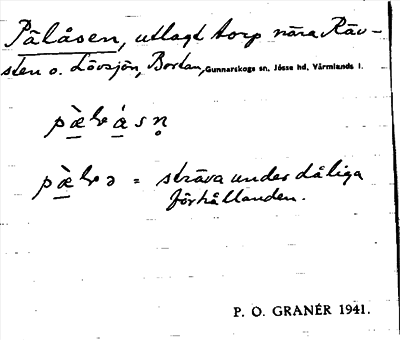 Pälåsen, utlagt torp nära Räv-
sten o. Lövsjön, Bortan, Gunnarskogs sn, Jösse hd, Värmlands l.
= sträva under dåliga
förhållanden.
P. O. GRANÉR 1941.